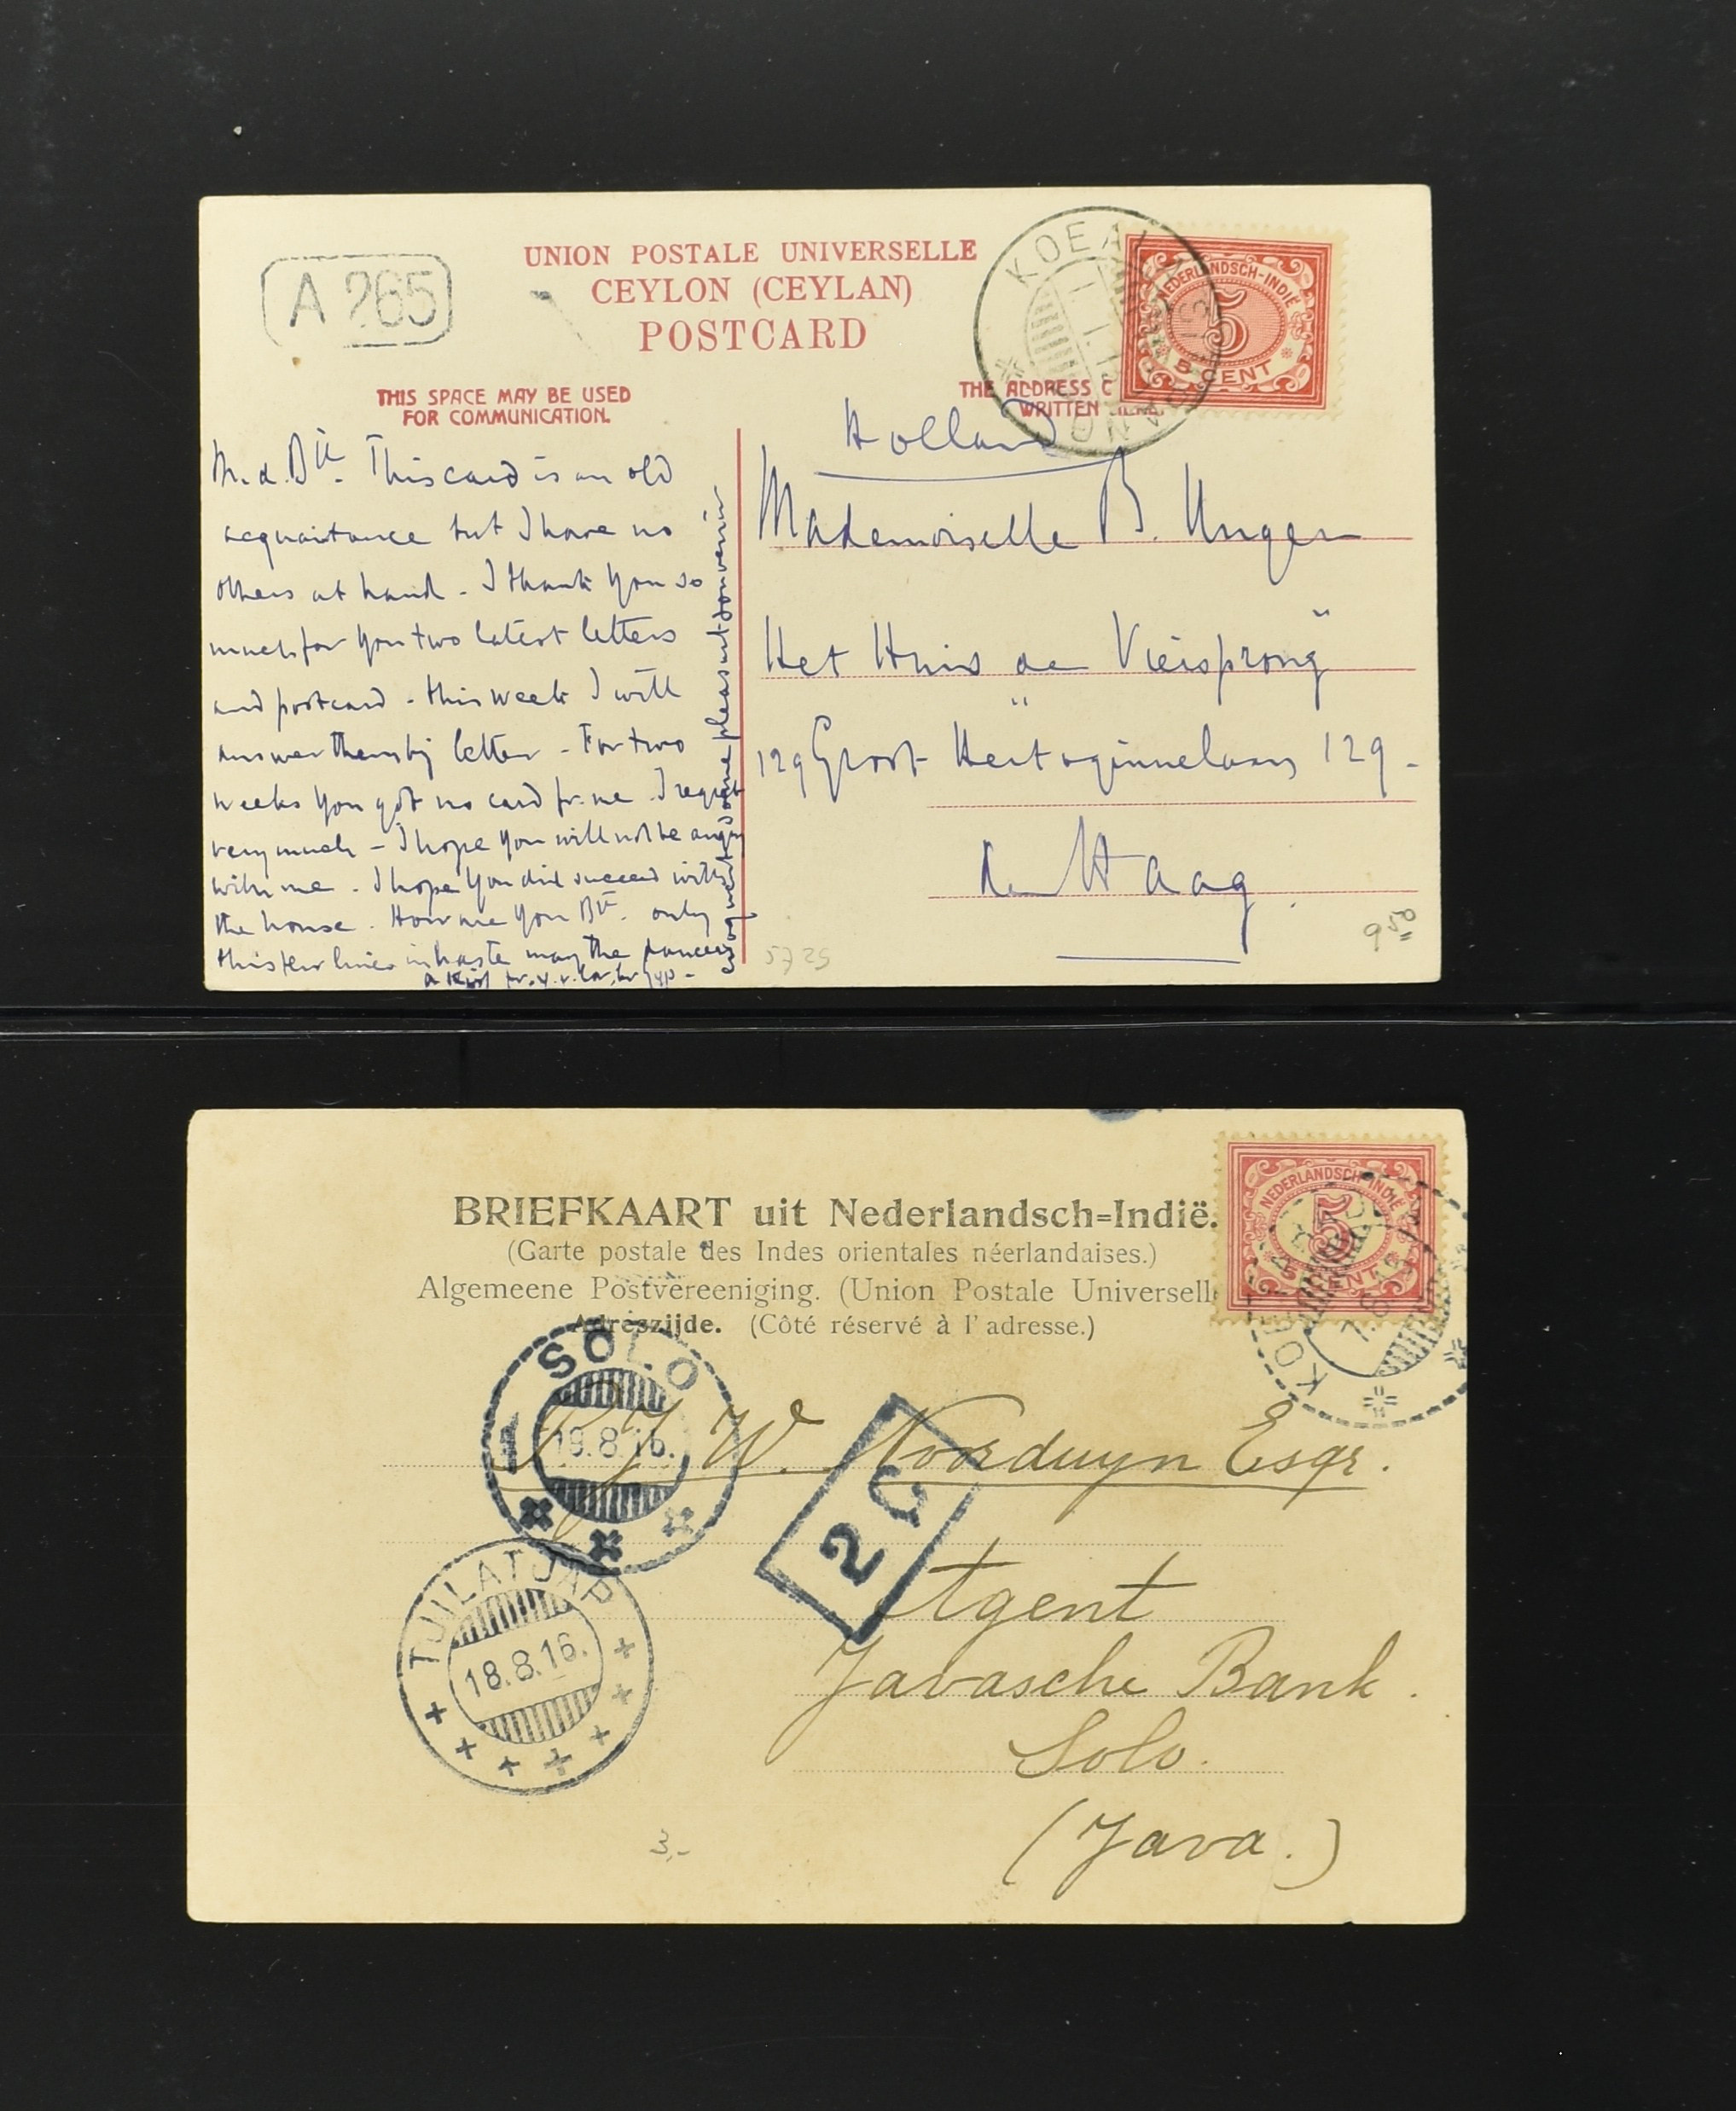 A 265
UNION POSTALE UNIVERSELLE
CEYLON (CEYLAN)
POSTCARD
THIS SPACE MAY BE USED
FOR COMMUNICATION.
THE ADDRESS
WRITTEN
NEDERLANDSCH-INDIË
5
5 CENT
This card is an old
acquaintance but I have no
others at hand - I thank you so
much for your two latest letters
and postcard - this week I will
answer them by letter - For two
weeks you got no card fr. me. I regret
very much - I hope you will not be angry
with me - I hope you did succeed with
the house. How are you Btt. only
this few lines in haste may the dancers
some pleasant souvenir
a kiss fr. y. v.
Holland
Mademoiselle B. Unger
Het Huis de Viersprong"
129 Groot Hertoginnelaan 129 -
den Haag.
5725
9 50
BRIEFKAART uit Nederlandsch=Indië.
(Carte postale des Indes orientales néerlandaises.)
Algemeene Postvereeniging. (Union Postale Universell
Adreszijde. (Côté réservé à l'adresse.)
NEDERLANDSCH-INDIË
5
5 CENT
SOLO
19.8.16.
TJILATJAP
18.8.16.
2 C
J W. Noorduyn Esqr.
Agent
Javasche Bank.
Solo.
(Java.)
3,-